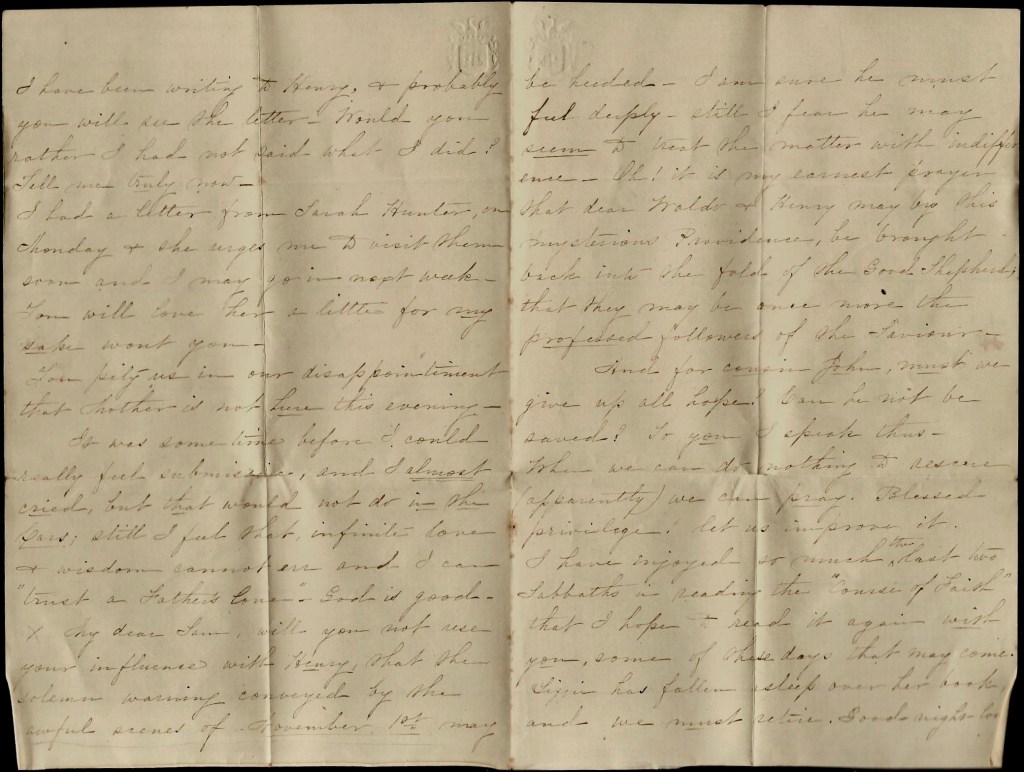 I have been writing to Henry, & probably
you will see the letter – Would you
rather I had not said what I did?
Tell me truly now –
I had a letter from Sarah Hunter, on
Monday & she urges me to visit them
soon and I may go in next week –
You will love her a little for my
sake wont you –
You pity us in our disappointment
that Mother is not here this evening –
It was some time before I could
really feel submissive, and I almost
cried, but that would not do in the
Cars; still I feel that, infinite love
& wisdom cannot err and I can
"trust a Father's love" – God is good –
X My dear Sam, will you not use
your influence with Henry, that the
solemn warning conveyed by the
awful scenes of November 1st may
be heeded – I am sure he must
feel deeply – still I fear he may
seem to treat the matter with indiffer
ence – Oh! it is my earnest prayer
that dear Waldo & Henry may by this
mysterious Providence, be brought
back into the fold of the Good Shepherd,
that they may be once more the
professed followers of the Saviour –
And for cousin John, must we
give up all hope? Can he not be
saved? To you I speak thus –
When we can do nothing to rescue
(apparently) we can pray. Blessed
privilege! let us improve it.
I have injoyed so much the last two
Sabbaths in reading the "Course of Faith"
that I hope to read it again with
you, some of these days that may come.
Lizzie has fallen asleep over her book
and we must retire. Good night